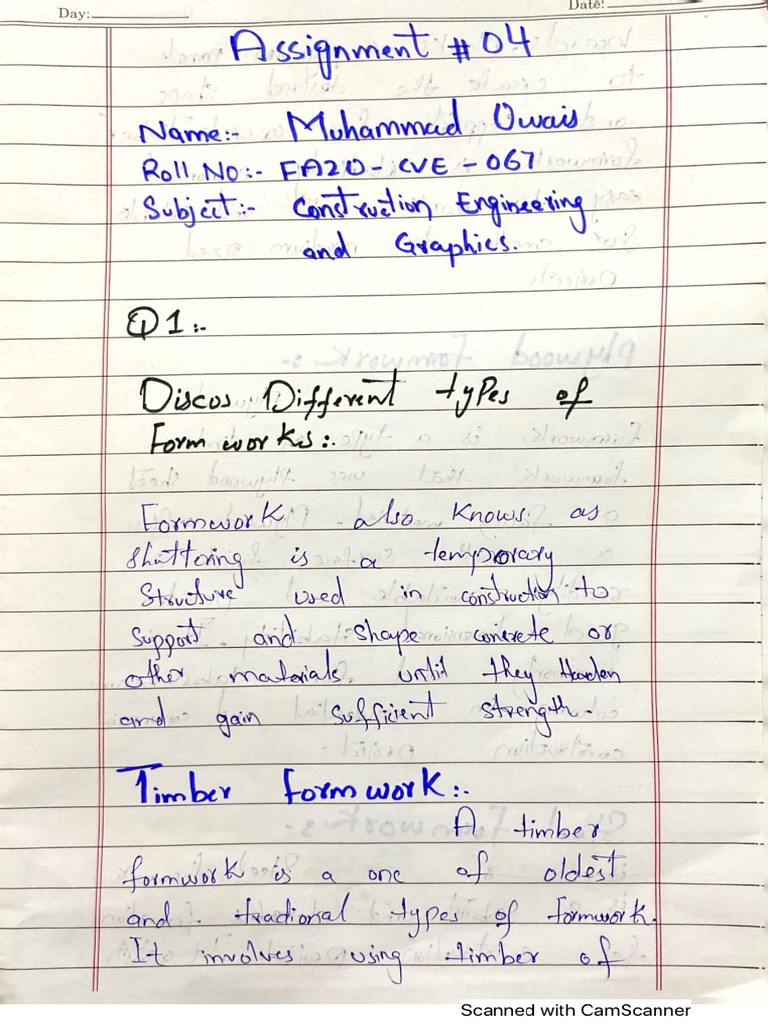 Day:
Date:
Assignment # 04
Name:- Muhammad Owais
Roll No:- FA20-CVE-067
Subject:- Construction Engineering
and Graphics.
Q1:-
Discos Different types of
Form works:.
Formwork also knows as
shuttering is a temporary
Structure used in construction to
support and shape concrete or
other materials until they Harden
and gain sufficient strength.
Timber formwork:.
A timber
formwork is a one of oldest
and tradional types of formwork.
It involves using timber of
Scanned with CamScanner